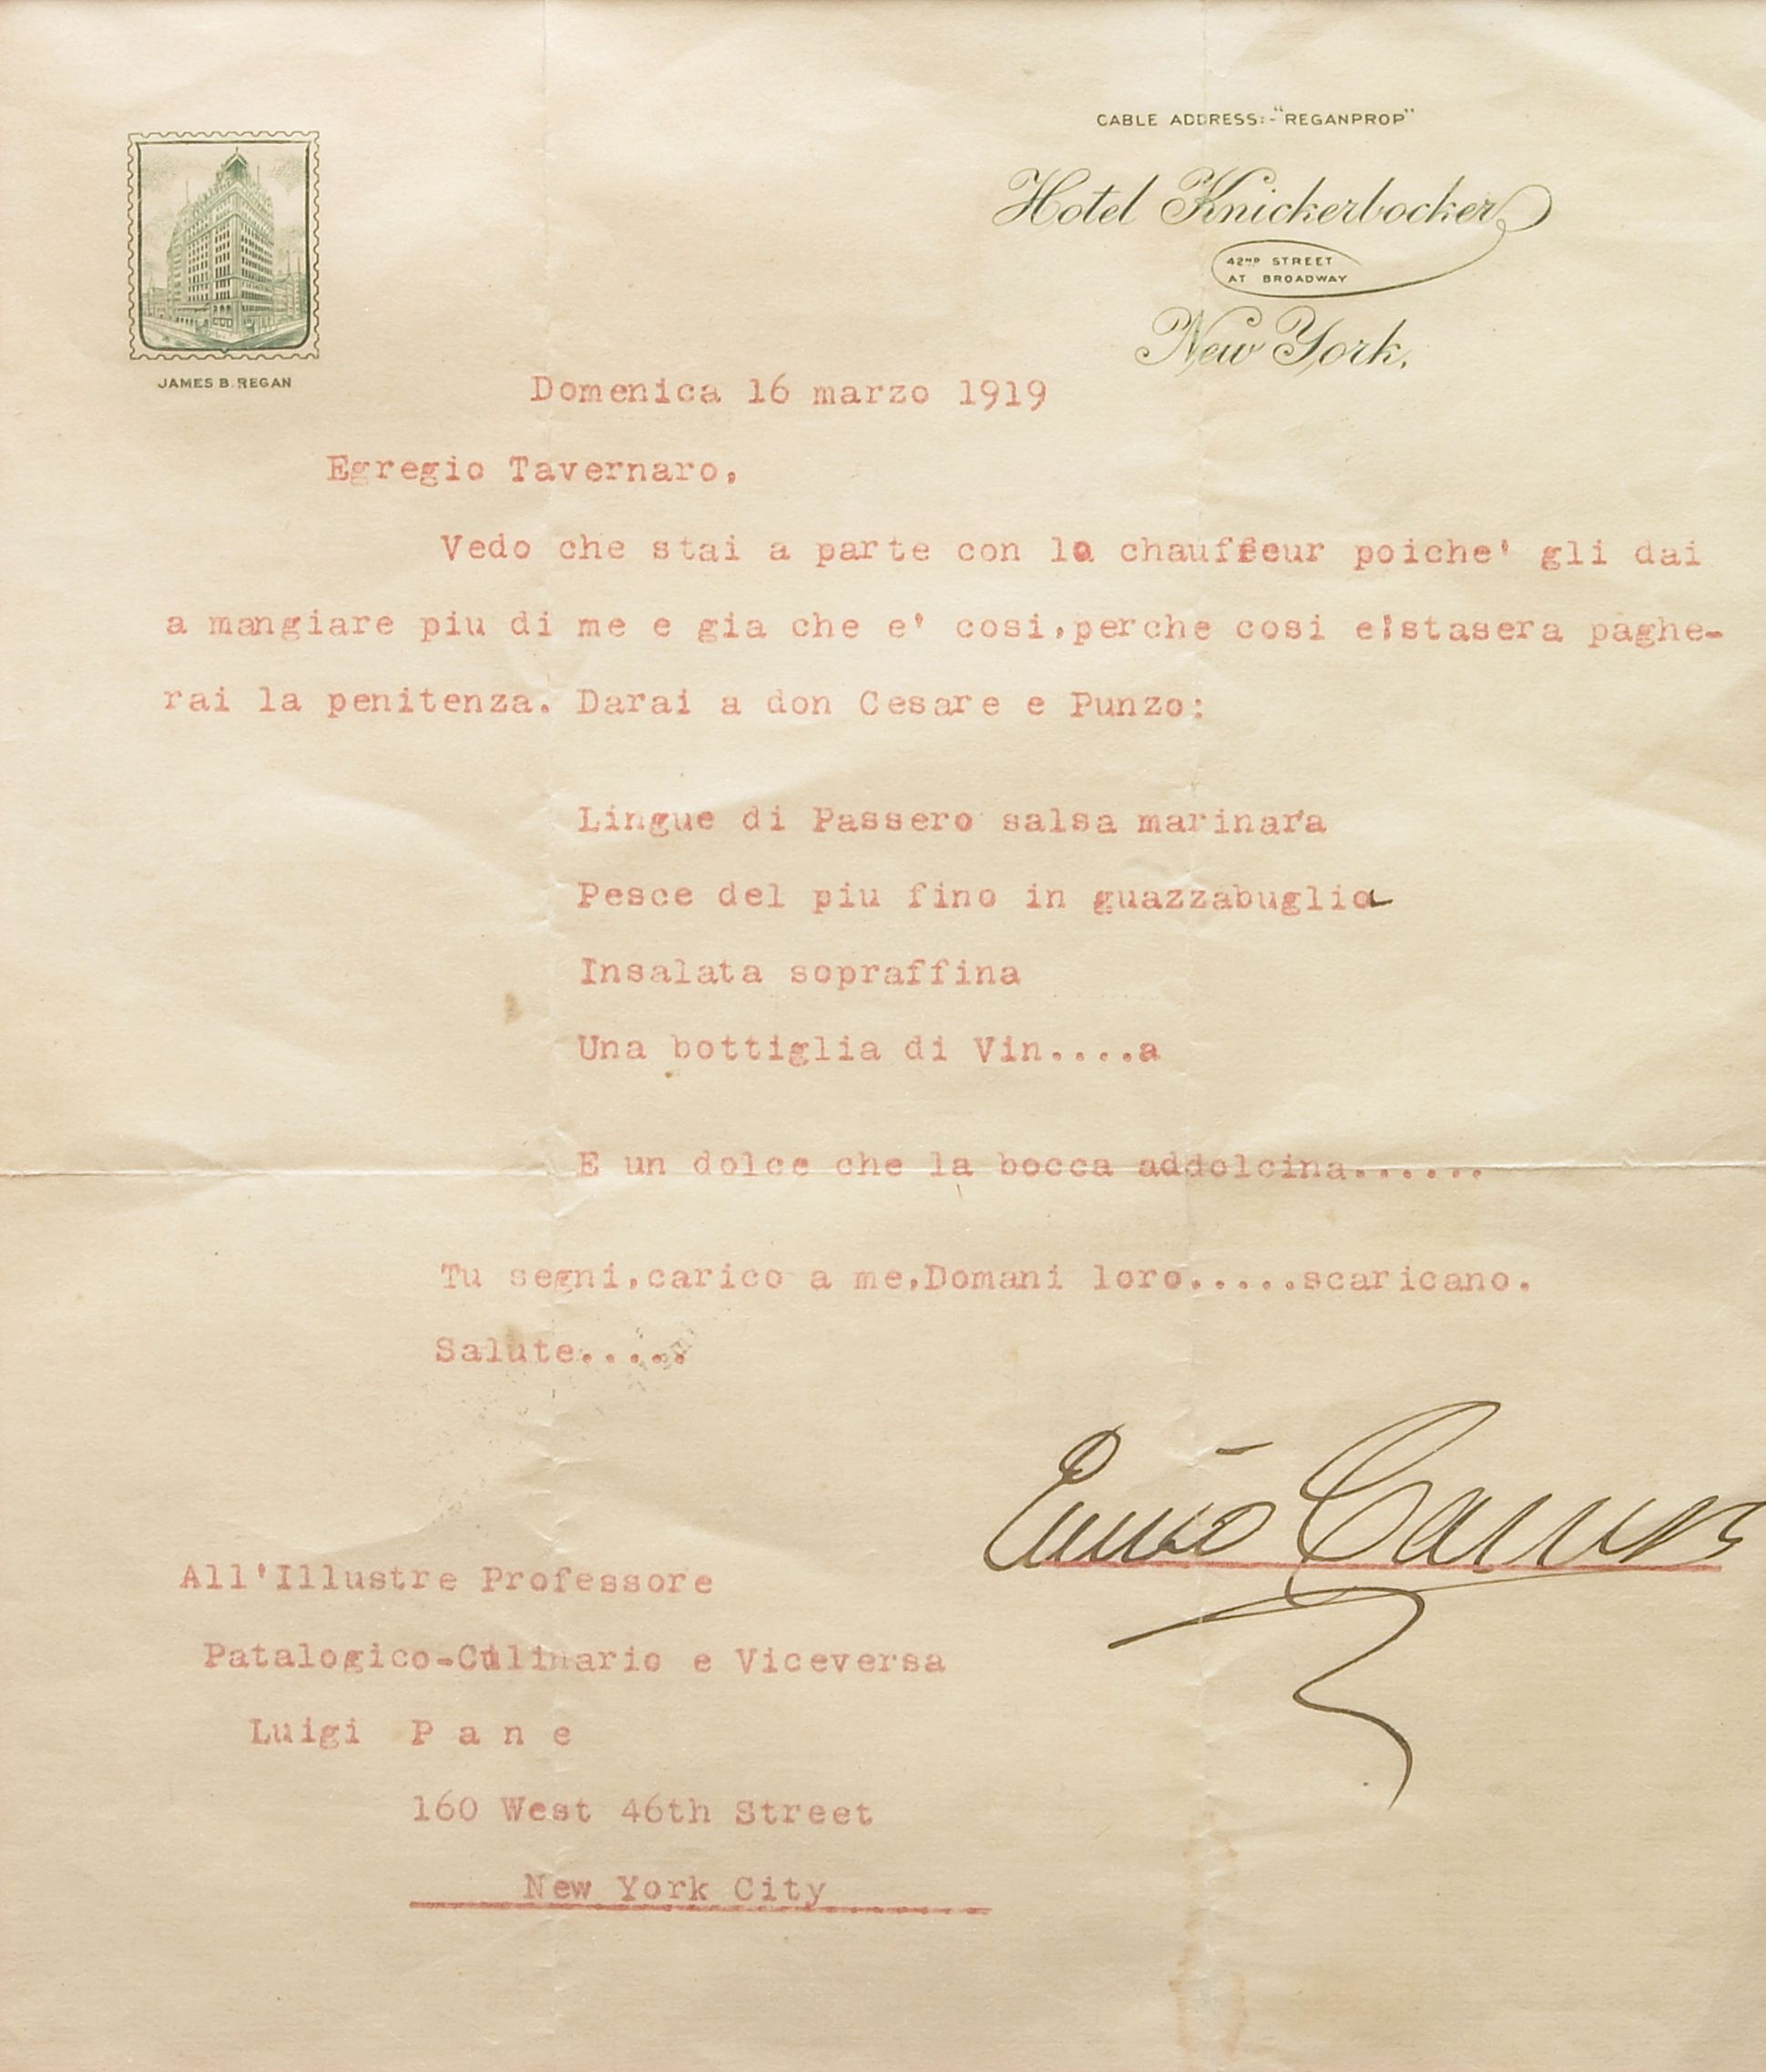 CABLE ADDRESS:-"REGANPROP"
Hotel Knickerbocker
42ND STREET
AT BROADWAY
New York.
JAMES B. REGAN
Domenica 16 marzo 1919
Egregio Tavernaro,
Vedo che stai a parte con lo chauffeur poiche' gli dai
a mangiare piu di me e gia che e' cosi,perche cosi e'stasera paghe-
rai la penitenza. Darai a don Cesare e Punzo:
Lingue di Passero salsa marinara
Pesce del piu fino in guazzabuglia
Insalata sopraffina
Una bottiglia di Vin....a
E un dolce che la bocca addolcina......
Tu segni,carico a me,Domani loro.....scaricano.
Salute.....
Enrico Caruso
All'Illustre Professore
Patalogico-Culinario e Viceversa
Luigi P a n e
160 West 46th Street
New York City